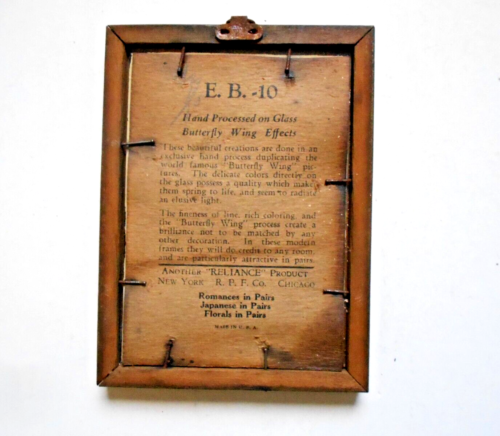 E. B. -10
Hand Processed on Glass
Butterfly Wing Effects
These beautiful creations are done in an
exclusive hand process duplicating the
world famous "Butterfly Wing" pic-
tures. The delicate colors directly on
the glass possess a quality which makes
them spring to life, and seem to radiate
an elusive light.
The fineness of line, rich coloring, and
the "Butterfly Wing" process create a
brilliance not to be matched by any
other decoration. In these modern
frames they will do credit to any room,
and are particularly attractive in pairs.
ANOTHER "RELIANCE" PRODUCT
NEW YORK R. P. F. CO. CHICAGO
Romances in Pairs
Japanese in Pairs
Florals in Pairs
MADE IN U. S. A.